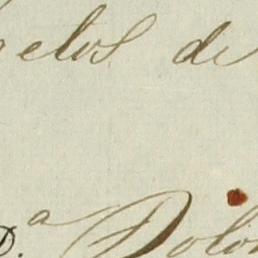 elos de
D.ª Dolo